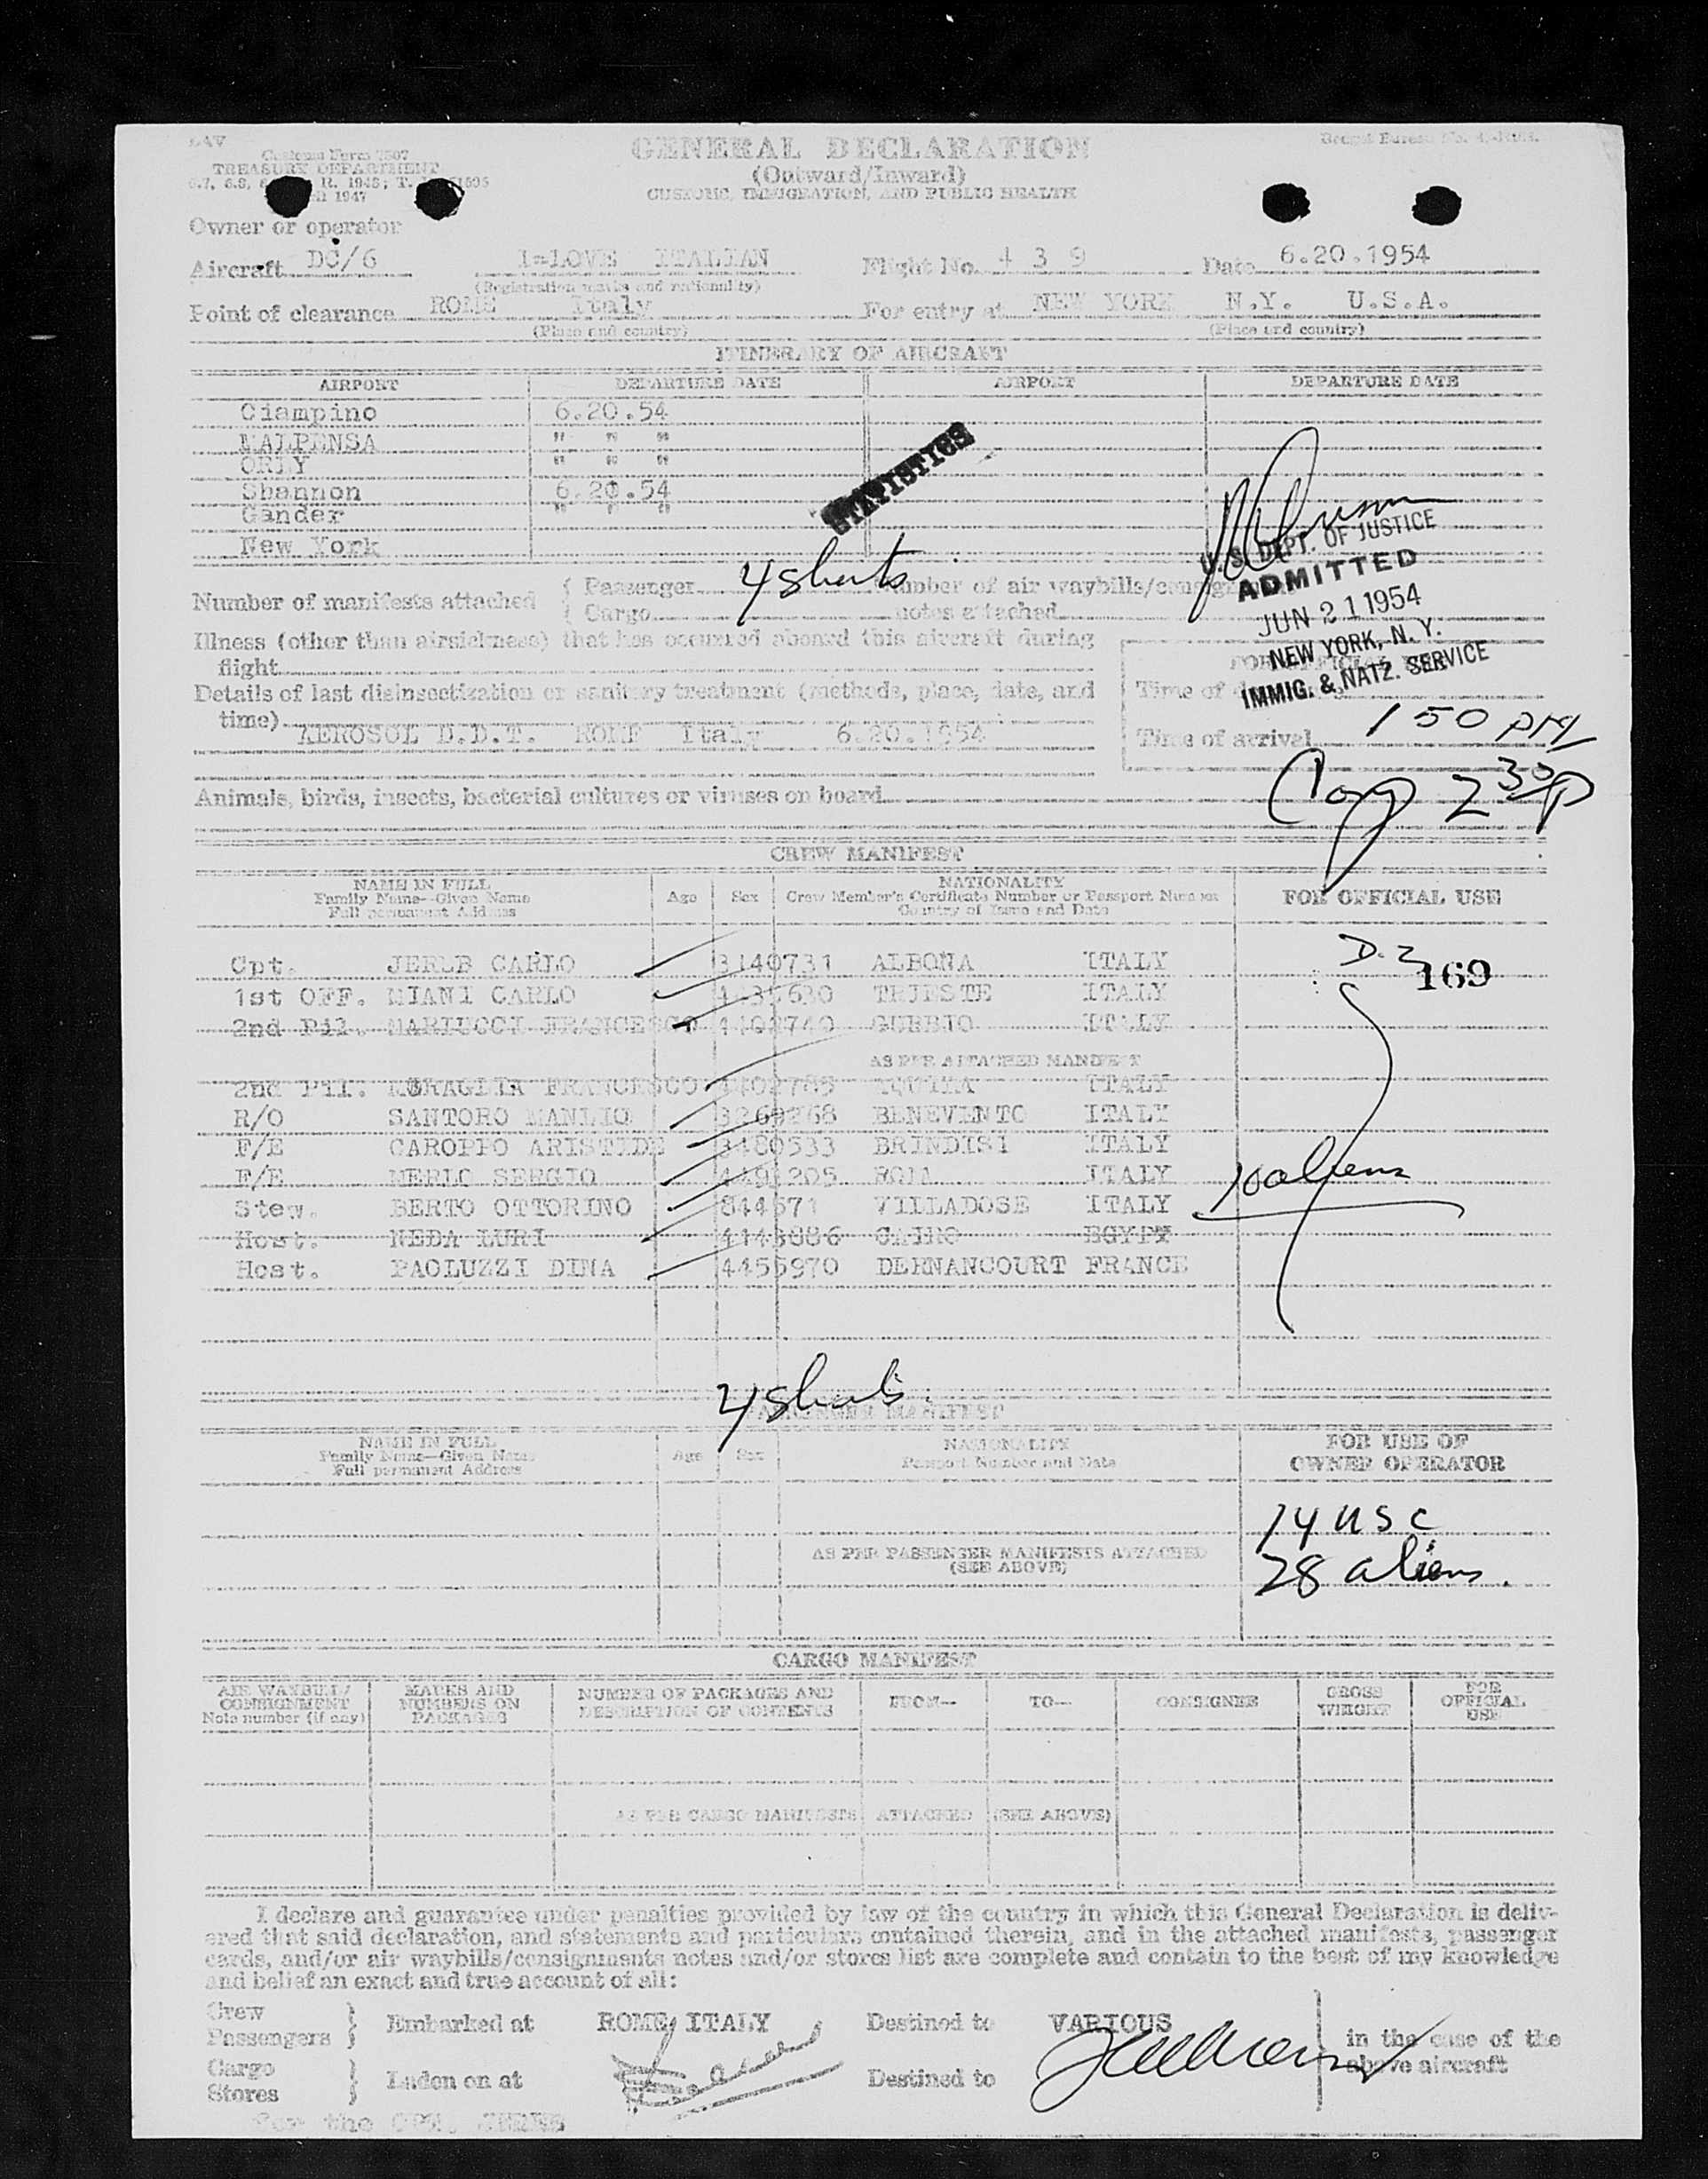 LAV
Customs Form 7507
TREASURY DEPARTMENT
1947
GENERAL DECLARATION
(Outward/Inward)
CUSTOMS, IMMIGRATION, AND PUBLIC HEALTH
Owner or operator
Aircraft DC/6 I=LOVE ITALIAN Flight No. 4 3 9 Date 6.20.1954
(Registration marks and nationality)
Point of clearance ROME Italy For entry at NEW YORK N.Y. U.S.A.
(Place and country) (Place and country)
ITINERARY OF AIRCRAFT
AIRPORT DEPARTURE DATE AIRPORT DEPARTURE DATE
Ciampino 6.20.54
MALPENSA " " "
ORLY " " "
Shannon 6.20.54
Gander " " "
New York
STATISTICS
U.S. DEPT. OF JUSTICE
ADMITTED
JUN 21 1954
NEW YORK, N.Y.
IMMIG. & NATZ. SERVICE
Number of manifests attached { Passenger 4 sheets Number of air waybills/consignment
{ Cargo notes attached
Illness (other than airsickness) that has occurred aboard this aircraft during
flight
Details of last disinsectization or sanitary treatment (methods, place, date, and
time)
AEROSOL D.D.T. ROME Italy 6.20.1954
Time of
Time of arrival 1 50 PM
230p
Animals, birds, insects, bacterial cultures or viruses on board
CREW MANIFEST
NAME IN FULL
Family Name—Given Name
Full permanent Address
Age Sex
NATIONALITY
Crew Member's Certificate Number or Passport Number
Country of Issue and Date
FOR OFFICIAL USE
D.2
169
Cpt. JERLB CARLO 3140731 ALBONA ITALY
1st OFF. MIANI CARLO TRIESTE ITALY
2nd Pil. MARIUCCI FRANCESCO 4402740 GUBBIO ITALY
AS PER ATTACHED MANIFEST
2nd Pil. FRANCESCO 4402785 AQUILA ITALY
R/O SANTORO MANLIO 3269268 BENEVENTO ITALY
F/E CAROPPO ARISTIDE 3480533 BRINDISI ITALY
F/E MERLO SERGIO 4491205 ROMA ITALY
Stew. BERTO OTTORINO 844571 VILLADOSE ITALY
Host. NEDA LURI 4143886 CAIRO EGYPT
Host. PAOLUZZI DINA 4455970 DERNANCOURT FRANCE
10 aliens
4 sheets
PASSENGER MANIFEST
NAME IN FULL
Family Name—Given Name
Full permanent Address
Age Sex
NATIONALITY
Passport Number and Date
FOR USE OF
OWNER OPERATOR
14 USC
28 aliens.
AS PER PASSENGER MANIFESTS ATTACHED
(SEE ABOVE)
CARGO MANIFEST
AIR WAYBILL/
CONSIGNMENT
Note number (if any)
MARKS AND
NUMBERS ON
PACKAGES
NUMBER OF PACKAGES AND
DESCRIPTION OF CONTENTS
FROM—
TO—
CONSIGNEE
GROSS
WEIGHT
FOR
OFFICIAL
USE
AS PER CARGO MANIFESTS ATTACHED (SEE ABOVE)
I declare and guarantee under penalties provided by law of the country in which this General Declaration is deliv-
ered that said declaration, and statements and particulars contained therein, and in the attached manifests, passenger
cards, and/or air waybills/consignments notes and/or stores list are complete and contain to the best of my knowledge
and belief an exact and true account of all:
Crew
Passengers } Embarked at ROME, ITALY Destined to VARIOUS in the case of the
above aircraft
Cargo
Stores } Laden on at Destined to
For the